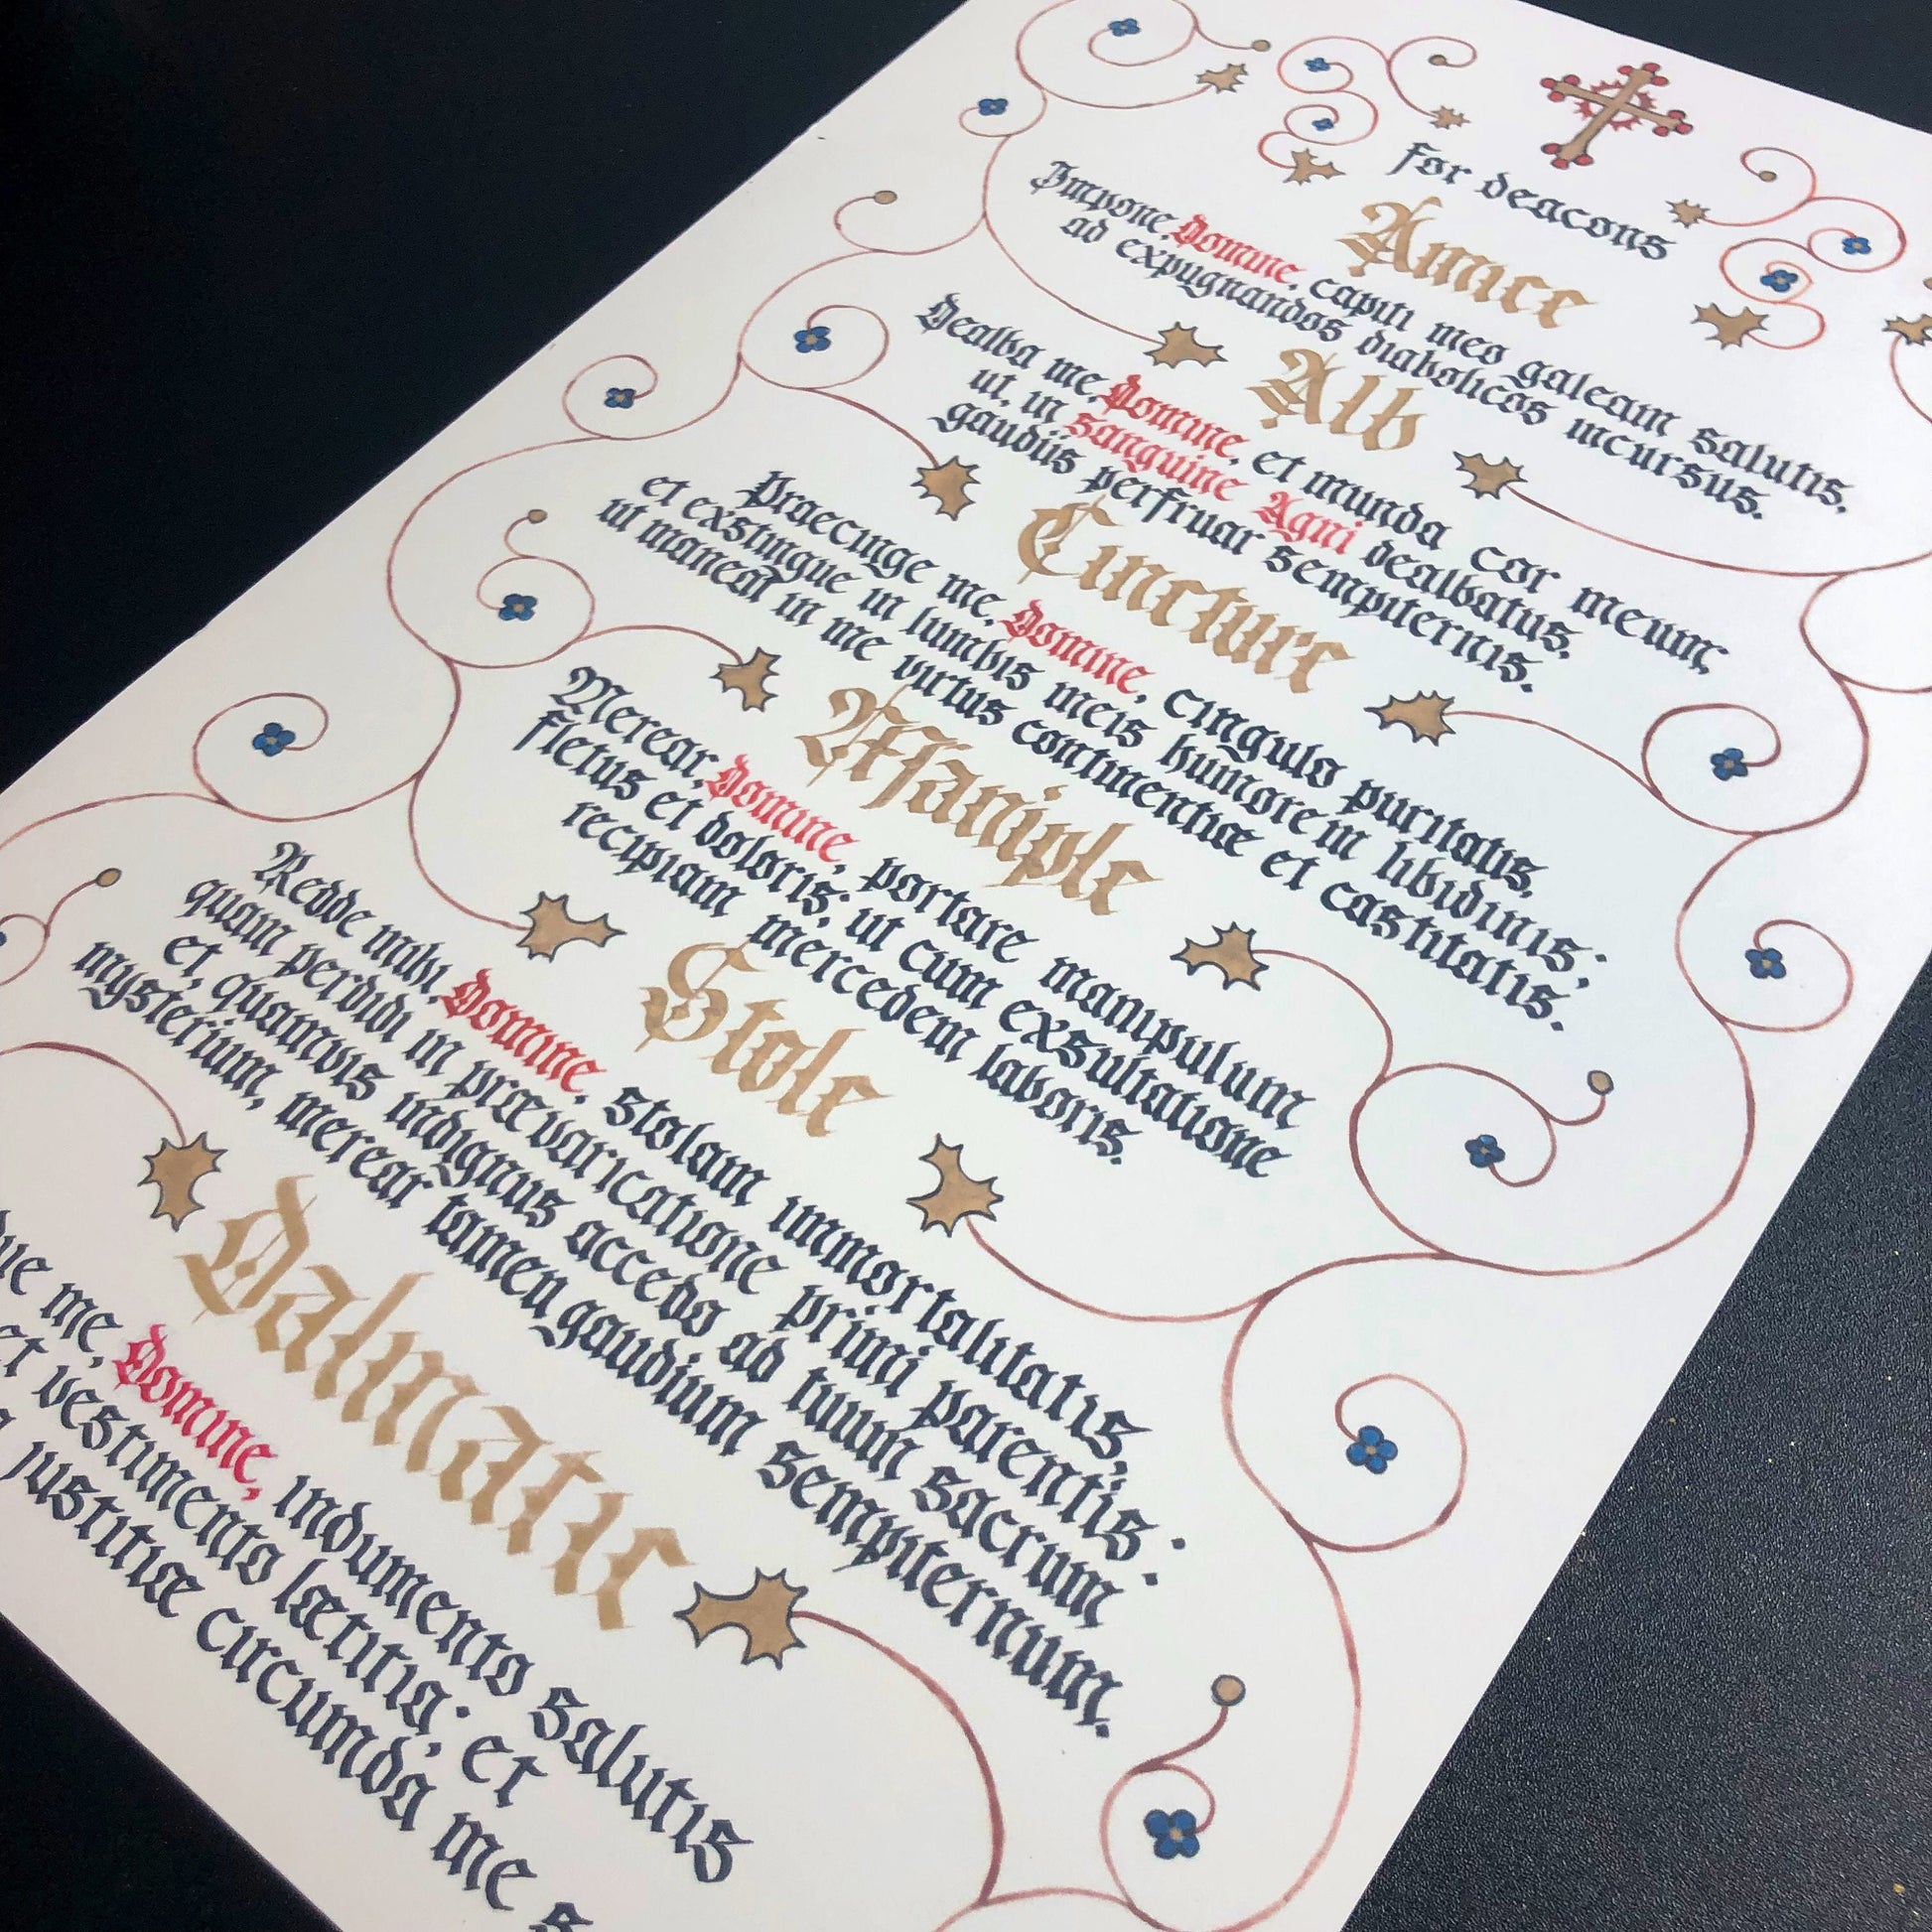 for deacons
Amice
Impone, Domine, capiti meo galeam salutis,
ad expugnandos diabolicos incursus.
Alb
Dealba me, Domine, et munda cor meum,
ut, in Sanguine Agni dealbatus,
gaudiis perfruar sempiternis.
Cincture
Praecinge me, Domine, cingulo puritatis,
et exstingue in lumbis meis humorem libidinis;
ut maneat in me virtus continentiæ et castitatis.
Maniple
Merear, Domine, portare manipulum
fletus et doloris; ut cum exsultatione
recipiam mercedem laboris.
Stole
Redde mihi, Domine, stolam immortalitatis,
quam perdidi in prævaricatione primi parentis:
et, quamvis indignus accedo ad tuum sacrum
mysterium, merear tamen gaudium sempiternum.
Dalmatic
me, Domine, indumento salutis
et vestimento lætitiæ; et
justitiæ circumda me